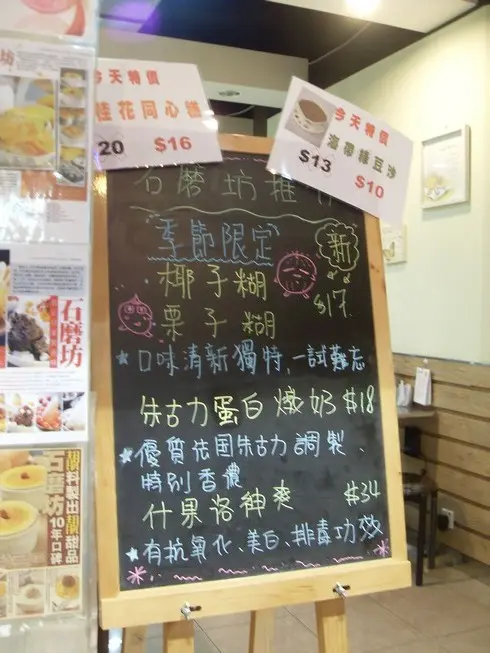 今天特價
桂花同心糕
20 $16
今天特價
海帶綠豆沙
$13 $10
石磨坊推
季節限定
新
椰子糊
栗子糊
$17
口味清新獨特,一試難忘
朱古力蛋白燉奶 $18
優質法国朱古力調製、
特別香濃
什果洛神爽 $34
有抗氧化、美白、排毒功效
坊
石磨坊
靚料製出靚甜品
石磨坊
10年口碑